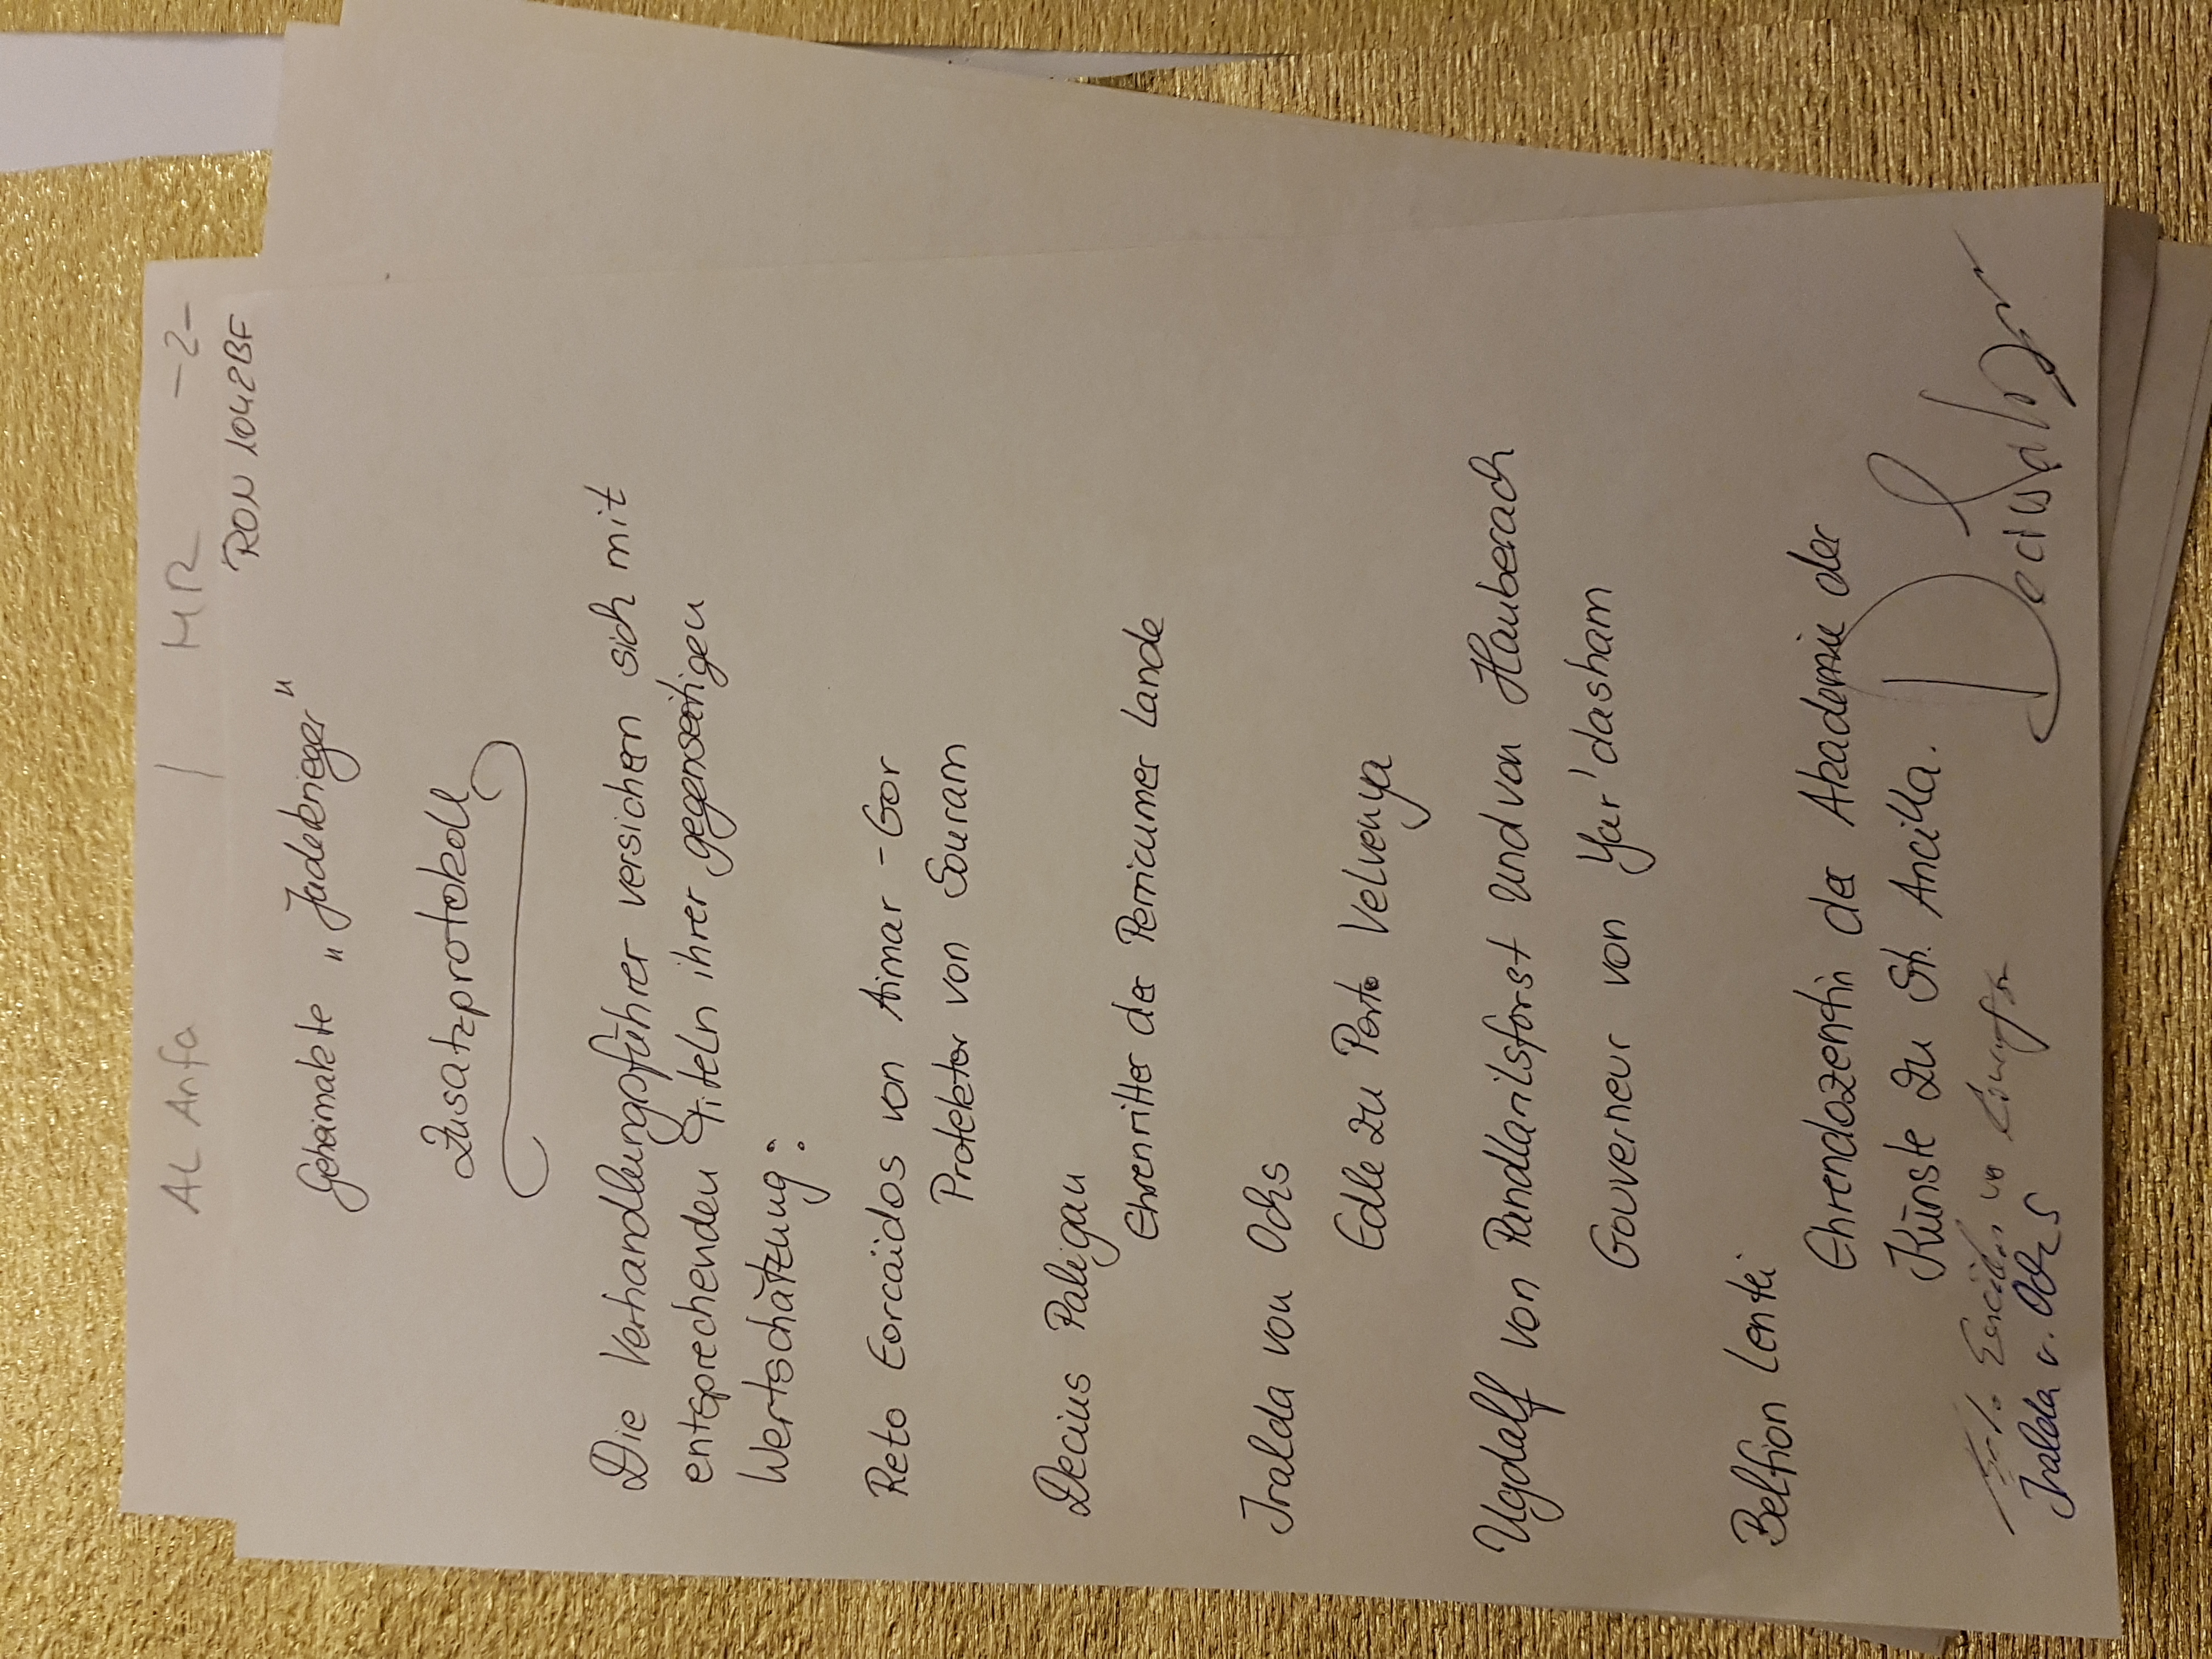 AL Anfa / MR -2-
RON 1042BF
Geheimakte "Jadekrieger"
Zusatzprotokoll
Die Verhandlungsführer versichern sich mit
entsprechenden Titeln ihrer gegenseitigen
Wertschätzung:
Reto Eorcaïdos von Aimar-Gor
Protektor von Souram
Decius Paligan
Ehrenritter der Perricumer Lande
Iralda von Ochs
Edle zu Porto Velvenya
Ugdalf von Pandlarilsforst und von Hauberach
Gouverneur von Yar'dasham
Belfion Lentki
Ehrendozentin der Akademie der
Künste zu St. Ancilla.
Iralda v. Ochs